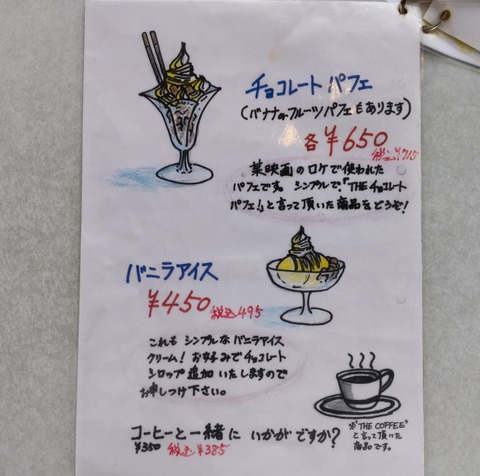 チョコレートパフェ
(バナナorフルーツパフェもあります)
各￥650
税込￥715
某映画のロケで使われた
パフェです。シンプルで、「THEチョコレート
パフェ!」と言って頂いた商品をどうぞ!
バニラアイス
￥450
税込495
これも シンプルなバニラアイス
クリーム! お好みでチョコレート
シロップ追加いたしますので
お申しつけ下さい。
コーヒーと一緒に いかがですか?
￥350 税込￥385
※"THE COFFEE"
と言って頂いた
商品です。